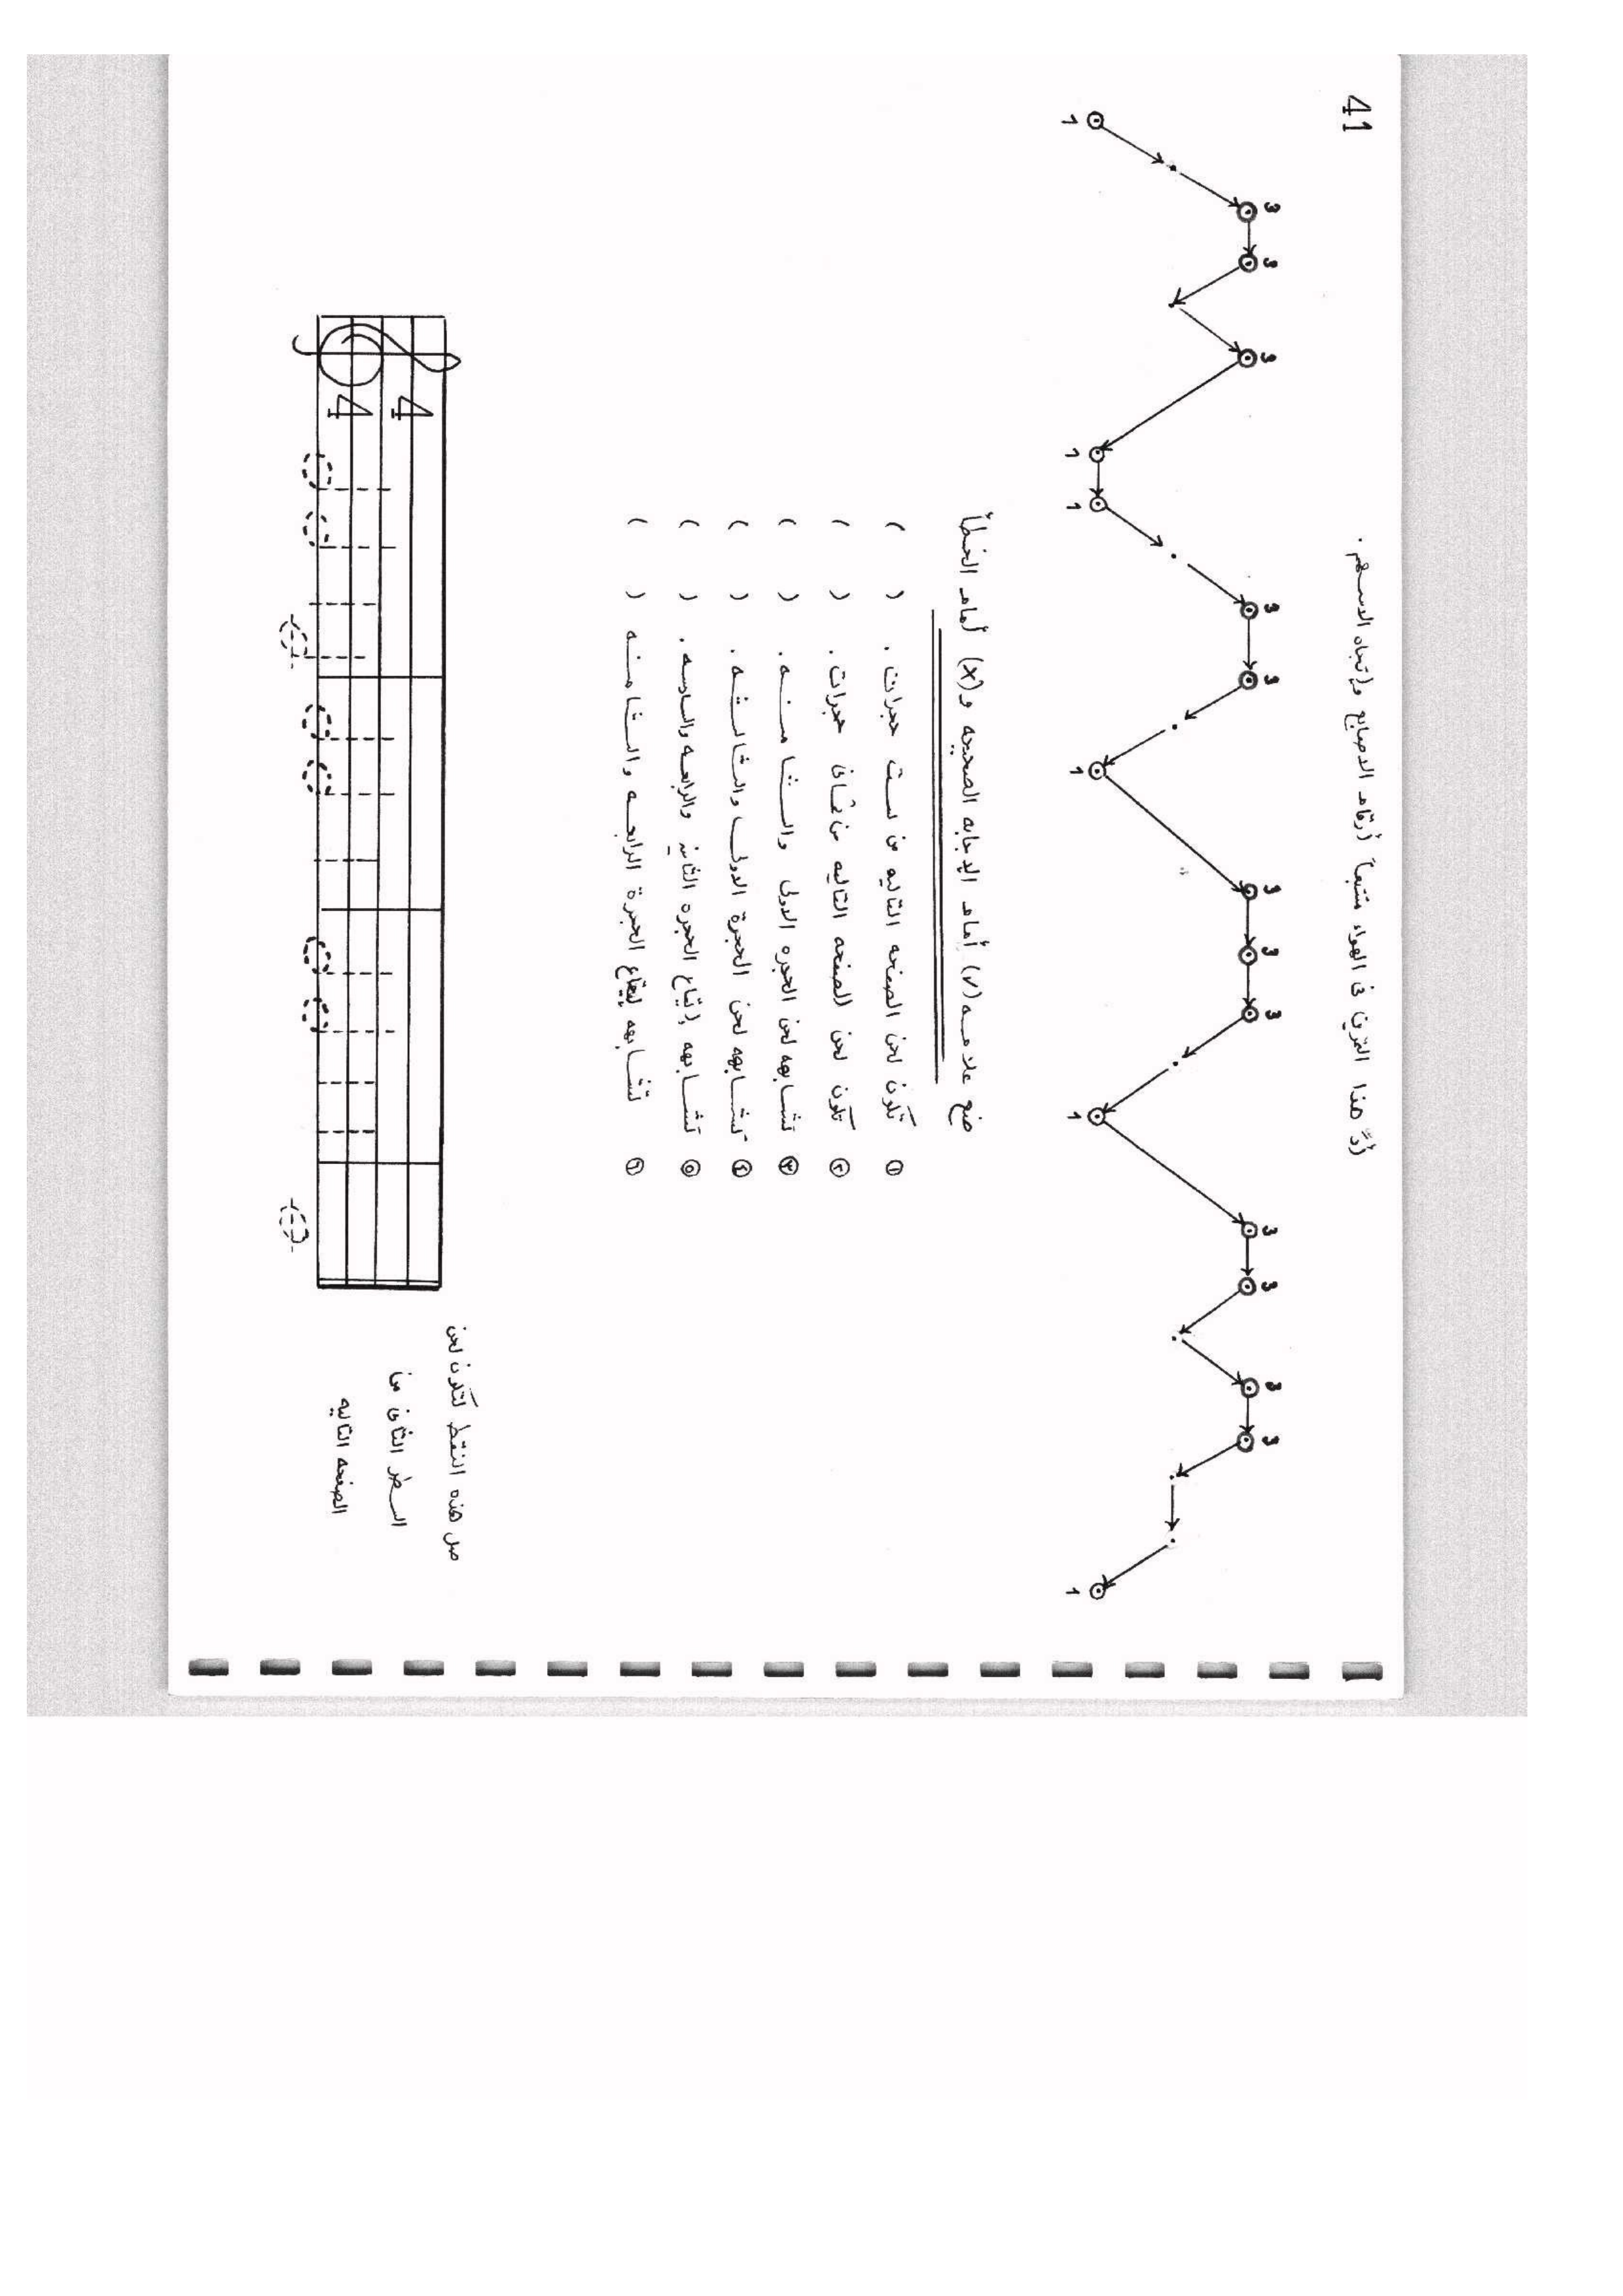 41
أدِّ هذا التمرين فى الهواء متتبعاً أرقام الاصابع وإتجاه الاسهم .
3 3 3 3 3 3 3 3 3 3 3 3
1 1 1 1 1 1
ضع علامـه (√) أمام الإجابه الصحيحه و (×) أمام الخطأ
① تكون لحن الصفحه التاليه من ست حجرات . ( )
② تكون لحن الصفحه التاليه من ثمانى حجرات . ( )
③ تشابهه لحن الحجره الاولى والثامنه . ( )
④ تشابهه لحن الحجرة الاولى والثالثه . ( )
⑤ تشابهه إيقاع الحجره الثانيه والرابعه والسادسه . ( )
⑥ تشابهه إيقاع الحجرة الرابعه والثامنه ( )
صل هذه النقط لتكون لحن
السطر الثانى من
الصفحه التاليه
4
4